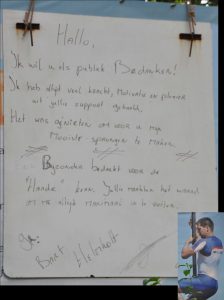 Hallo,
Ik wil u als publiek Bedanken!
Ik heb altijd veel kracht, Motivatie en plezier
uit jullie support gehaald.
Het was genieten om voor u mijn
Mooiste sprongen te maken.
Bijzonder bedankt voor de
"Handje" klaps. Jullie maakten het waard
om me altijd maximaal in te zetten.
Gr:
Bart Helmholt